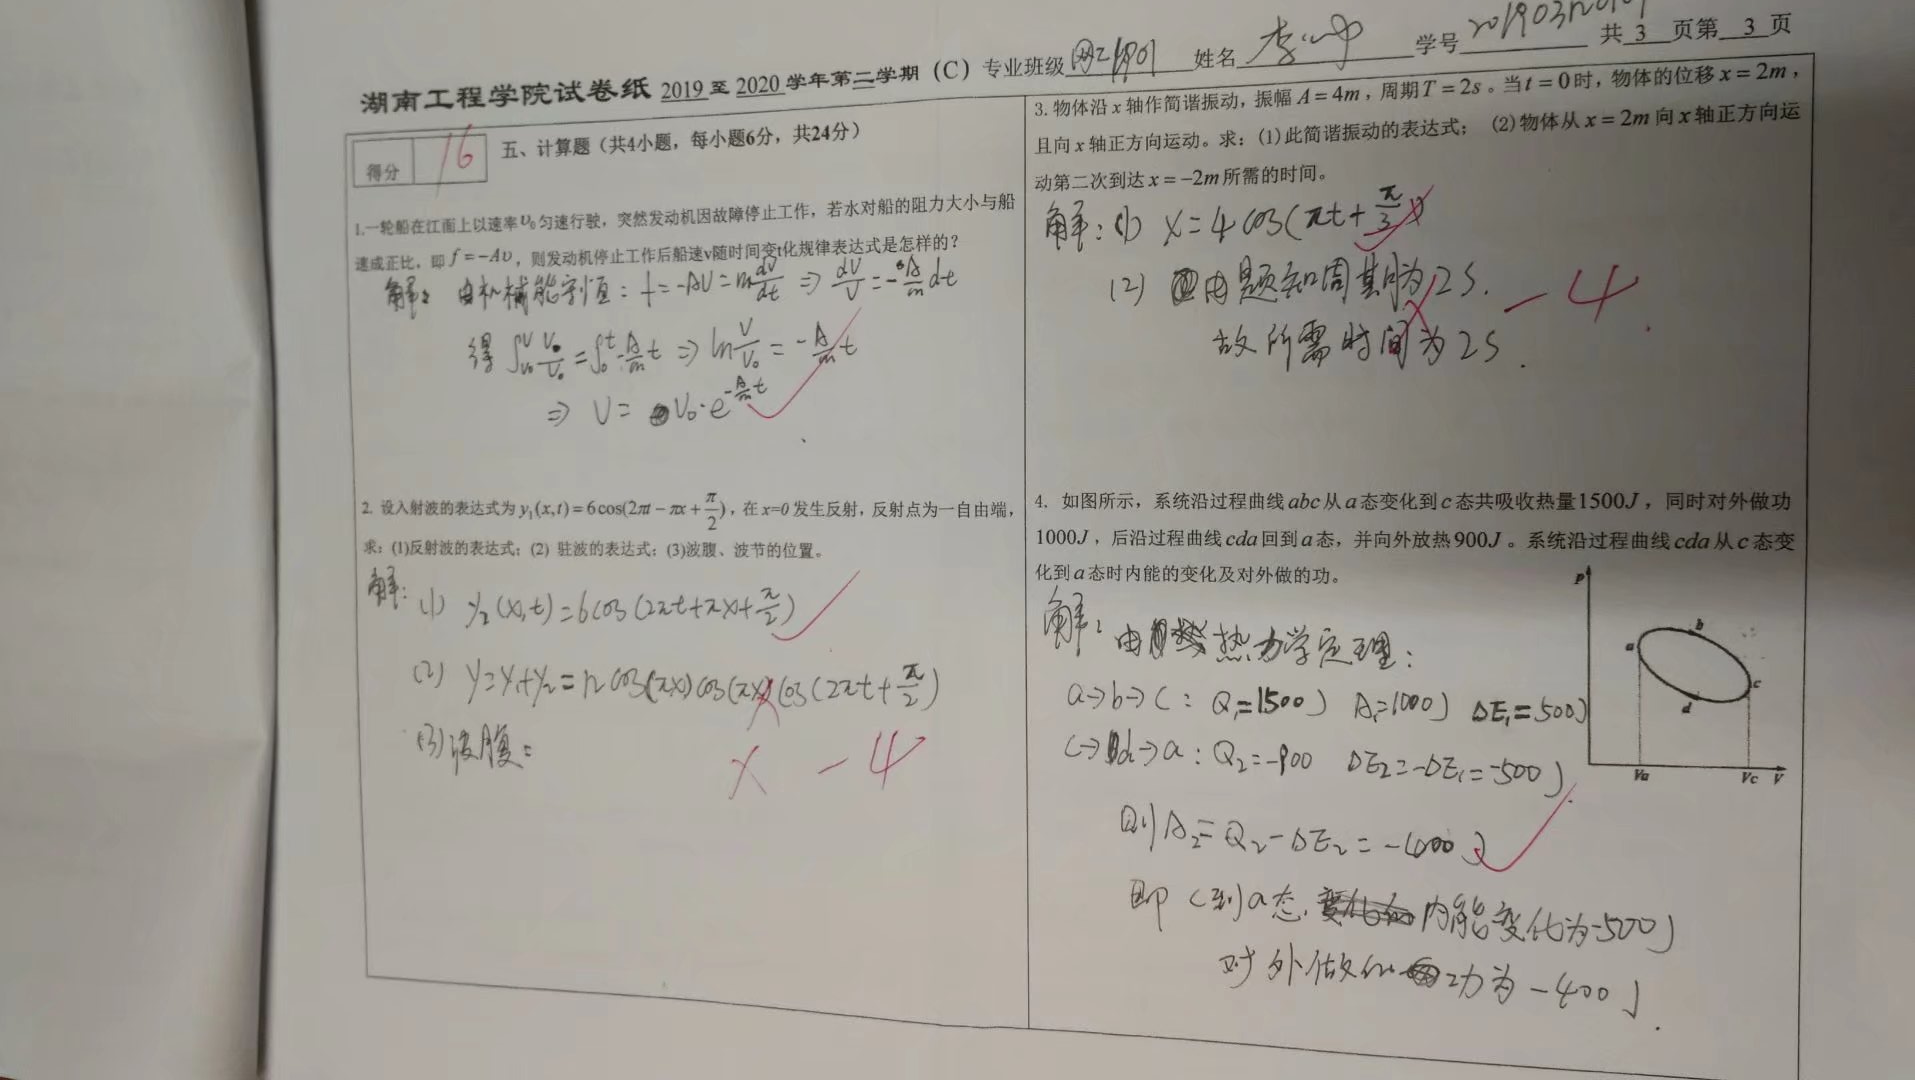 湖南工程学院试卷纸 2019 至 2020 学年第二学期（C）专业班级 姓名 学号 共 3 页第 3 页
得分 16
五、计算题（共4小题，每小题6分，共24分）
1.一轮船在江面上以速率υ₀匀速行驶，突然发动机因故障停止工作，若水对船的阻力大小与船
速成正比，即 f = −Aυ，则发动机停止工作后船速v随时间变t化规律表达式是怎样的？
解： 由机械能守恒：f = -AV = m dV/dt ⇒ dV/V = - A/m dt
得 ⇒ ln V/V₀ = - A/m t
⇒ V = V₀·e^(-A/m t)
2. 设入射波的表达式为 y₁(x,t) = 6cos(2πt − πx + π/2)，在 x=0 发生反射，反射点为一自由端，
求：(1)反射波的表达式；(2) 驻波的表达式；(3)波腹、波节的位置。
解：(1) y₂(x,t) = 6cos(2πt+πx+π/2)
(2) y=y₁+y₂=12cos(πx)cos(πx)cos(2πt+π/2)
(3)波腹：
× -4
3. 物体沿 x 轴作简谐振动，振幅 A = 4m，周期T = 2s。当 t = 0 时，物体的位移 x = 2m，
且向 x 轴正方向运动。求：(1)此简谐振动的表达式； (2)物体从 x = 2m 向 x 轴正方向运
动第二次到达 x = −2m 所需的时间。
解：(1) x = 4cos(πt + π/3)
(2) 由题知周期为2S.
-4
故所需时间为2S.
4. 如图所示，系统沿过程曲线 abc 从 a 态变化到 c 态共吸收热量1500J，同时对外做功
1000J，后沿过程曲线 cda 回到 a 态，并向外放热 900J。系统沿过程曲线 cda 从 c 态变
化到 a 态时内能的变化及对外做的功。
解：由热力学定理：
a→b→c：Q₁=1500J A₁=1000J ΔE₁=500J
c→d→a：Q₂=-900 ΔE₂=-ΔE₁=-500J
则A₂=Q₂-ΔE₂=-400J
即c到a态，内能变化为-500J
对外做的功为-400J.
P
a
b
c
d
Va
Vc
V